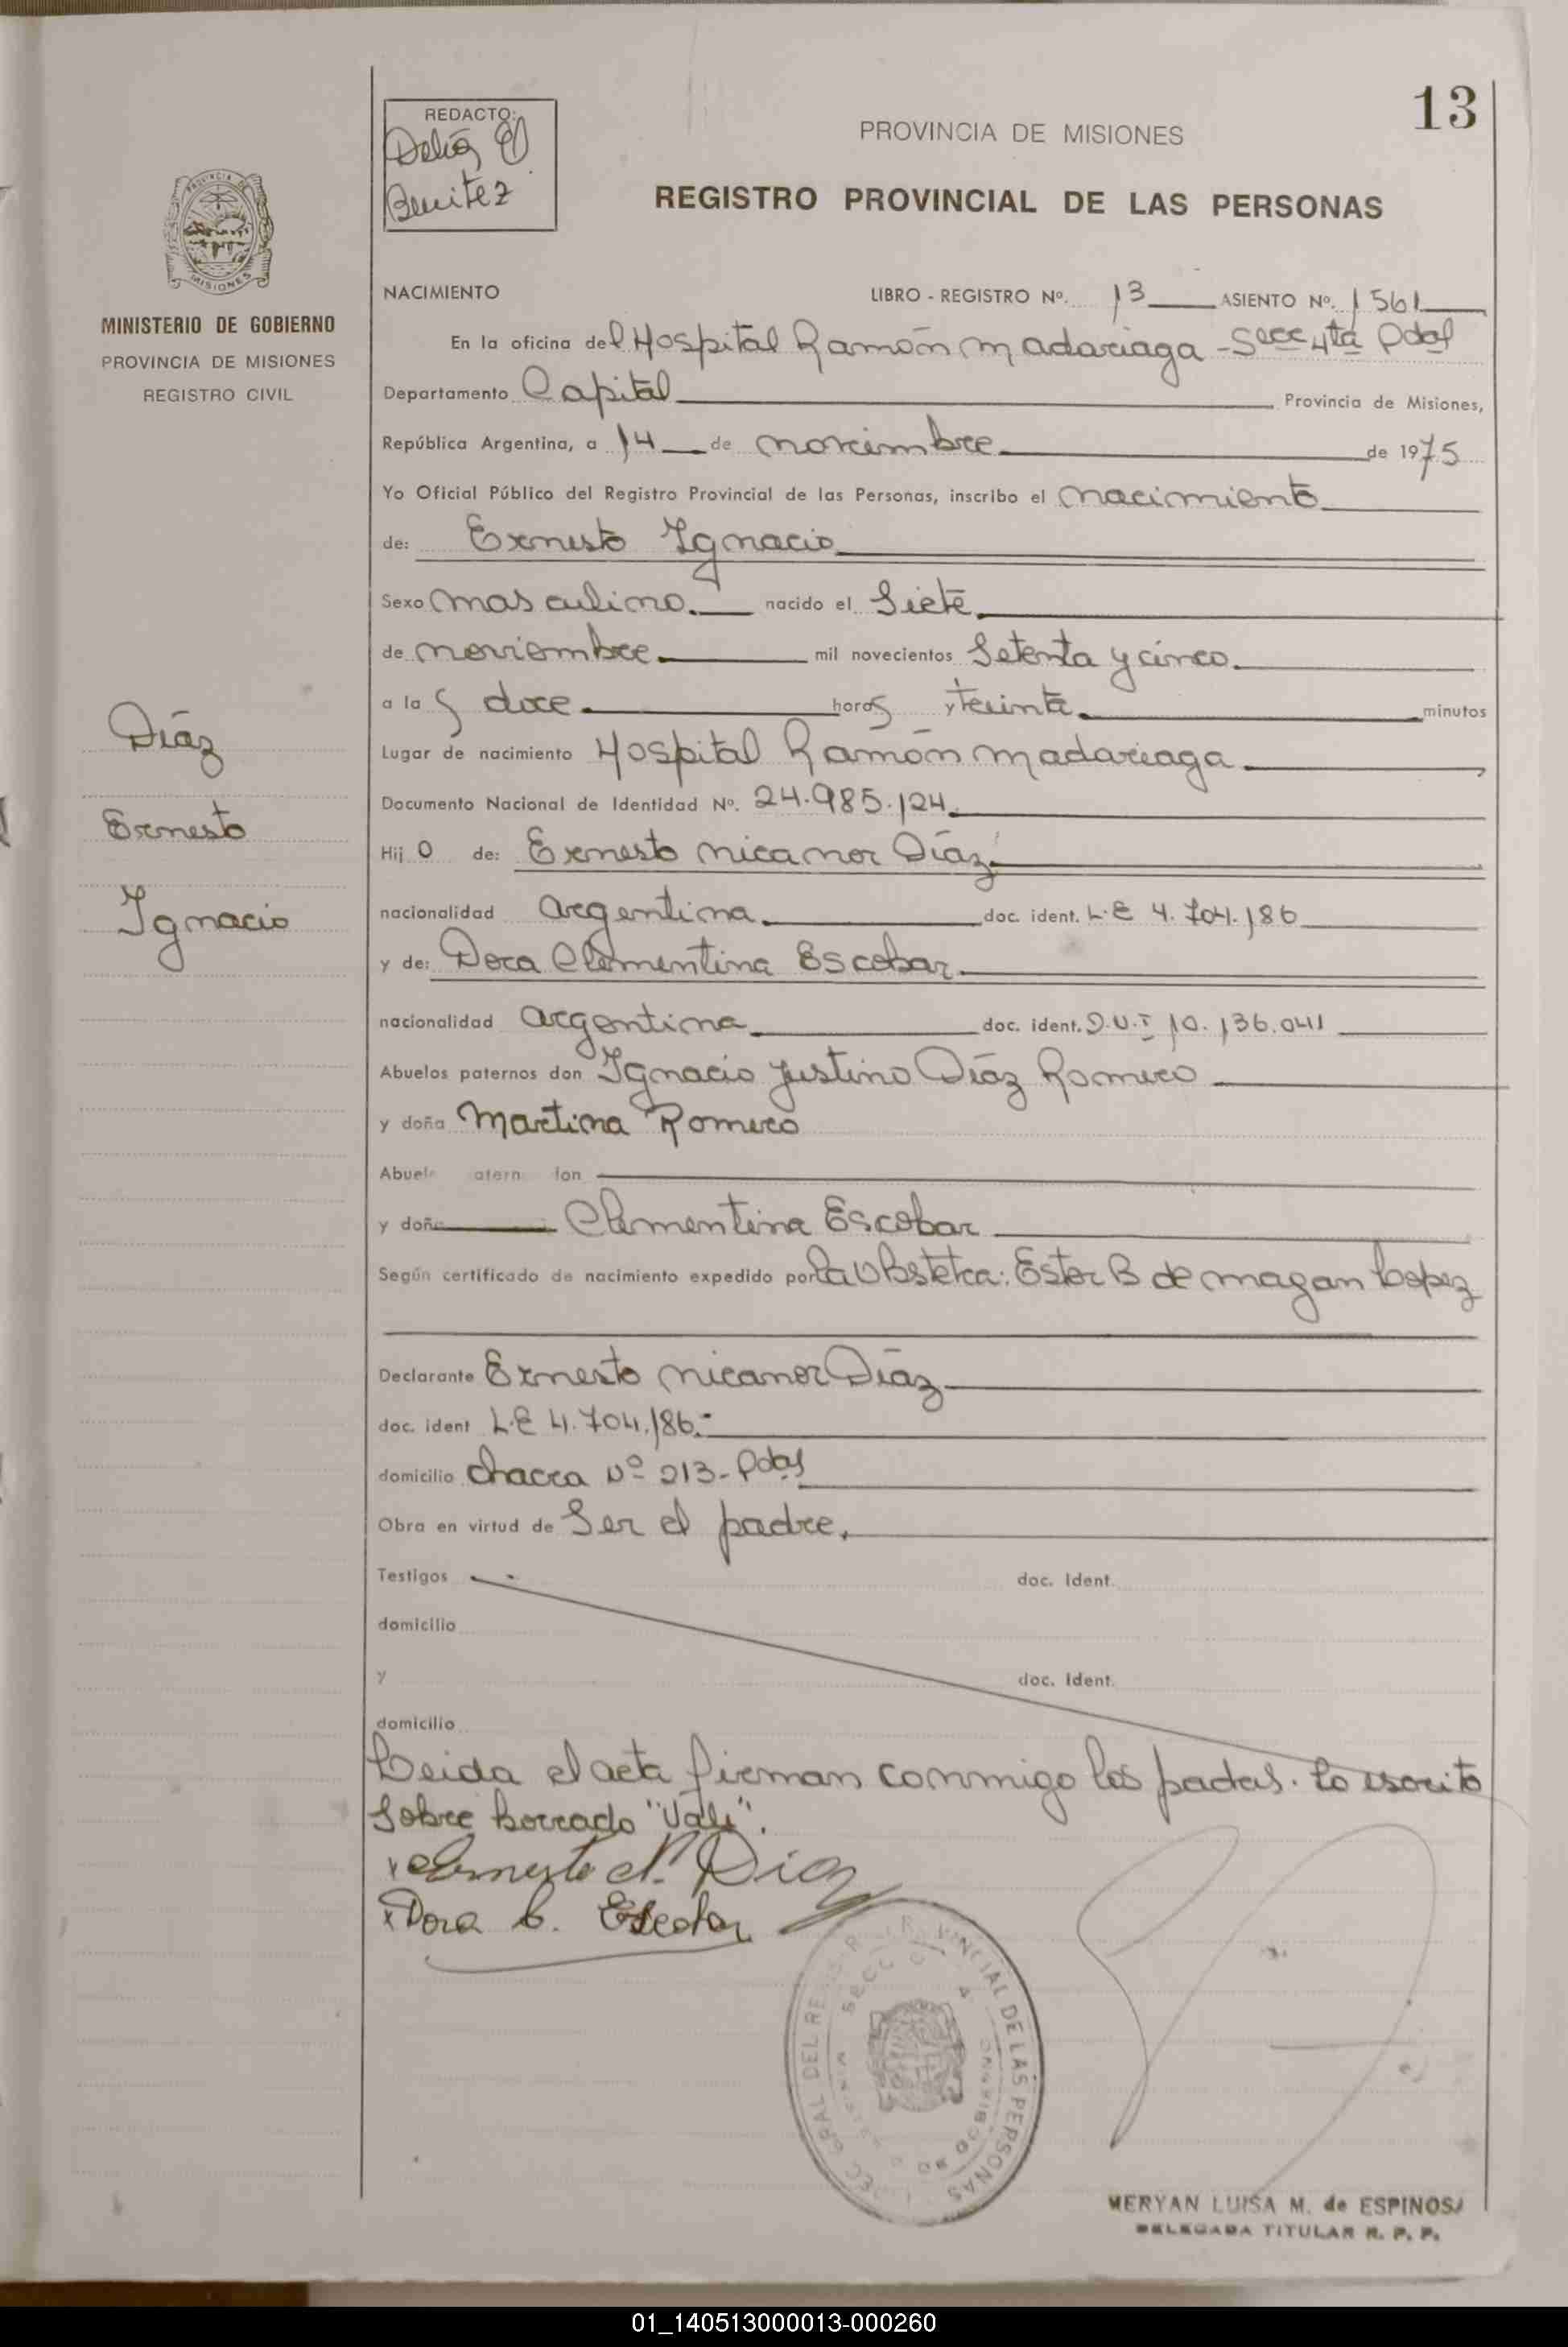 13
REDACTO:
Delia E
Benitez
PROVINCIA DE MISIONES
REGISTRO PROVINCIAL DE LAS PERSONAS
PROVINCIA DE
MISIONES
MINISTERIO DE GOBIERNO
PROVINCIA DE MISIONES
REGISTRO CIVIL
NACIMIENTO LIBRO - REGISTRO Nº. 13 ASIENTO Nº. 1561
En la oficina del Hospital Ramón Madariaga - Secc 4ta Pdas
Departamento Capital Provincia de Misiones,
República Argentina, a 14 de noviembre de 1975
Yo Oficial Público del Registro Provincial de las Personas, inscribo el nacimiento
de: Ernesto Ignacio
Sexo masculino. nacido el Siete
de noviembre. mil novecientos Setenta y cinco.
a las doce horas y treinta minutos
Lugar de nacimiento Hospital Ramón Madariaga
Documento Nacional de Identidad Nº. 24.985.124.
Hijo de: Ernesto Nicanor Díaz
nacionalidad argentina. doc. ident. L.E 4.704.186
y de: Dora Clementina Escobar.
nacionalidad argentina doc. ident. D.U.I 10.136.041
Abuelos paternos don Ignacio Justino Díaz Romero
y doña Martina Romero
Abuel atern don
y doña Clementina Escobar
Según certificado de nacimiento expedido por la Obstetra: Ester B de Magan Lopez
Declarante Ernesto Nicanor Díaz
doc. ident L.E 4.704.186.-
domicilio Chacra Nº 213- Pdas
Obra en virtud de Ser el padre.
Testigos doc. ident.
domicilio
y doc. ident.
domicilio
Leida el acta firman conmigo los padres. Lo escrito
Sobre borrado "Vale".
x Ernesto N. Diaz
x Dora C. Escobar
Díaz
Ernesto
Ignacio
DEL REGISTRO PROVINCIAL DE LAS PERSONAS
MERYAN LUISA M. de ESPINOSA
DELEGADA TITULAR R. P. P.
01_140513000013-000260